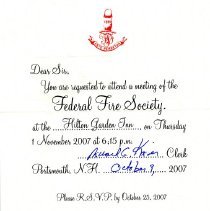 Dear Sir,
You are requested to attend a meeting of the
Federal Fire Society.
at the Hilton Garden Inn on Thursday
1 November 2007 at 6:15 p.m.
Clerk
Portsmouth, N.H. October 9, 2007
Please R.S.V.P. by October 25, 2007